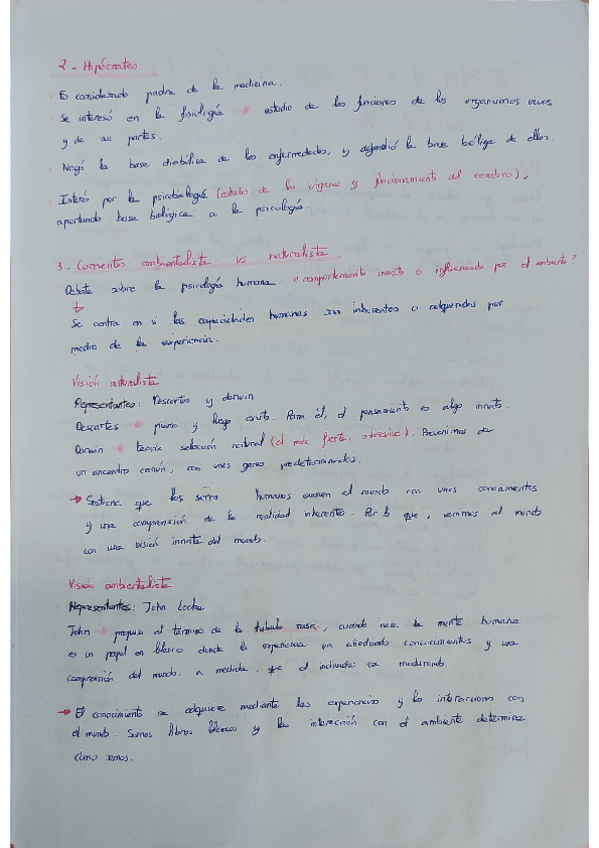 2- Hipócrates
Es considerado padre de la medicina.
Se interesó en la fisiología → estudio de las funciones de los organismos vivos
y de sus partes.
Negó la base diabólica de las enfermedades, y defendió la base biológica de ellas.
Interés por la psicobiología (estudio de los órganos y funcionamiento del cerebro),
aportando base biológica a la psicología.
3- Corrientes ambientalista vs naturalista
Debate sobre la psicología humana: ¿comportamiento innato o influenciado por el ambiente?
Se centra en si las capacidades humanas son inherentes o adquiridas por
medio de la experiencia.
Visión naturalista
Representantes: Descartes y darwin
Descartes → pienso y luego existo. Para él, el pensamiento es algo innato.
Darwin → teoría selección natural (el más fuerte, sobrevive). Provenimos de
un encentro común, con unos genes predeterminados.
→ Sostiene que los seres humanos vienen al mundo con unos conocimientos
y una comprensión de la realidad inherentes. Por lo que, venimos al mundo
con una visión innata del mundo.
Visión ambientalista
Representantes: John Locke
John → propuso el término de la tabula rasa, cuando nace la mente humana
es un papel en blanco donde la experiencia va añadiendo conocimientos y una
comprensión del mundo, a medida, que el individuo va madurando.
→ El conocimiento se adquiere mediante las experiencias y las interacciones con
el mundo. Somos libros blancos y la interacción con el ambiente determina
como somos.